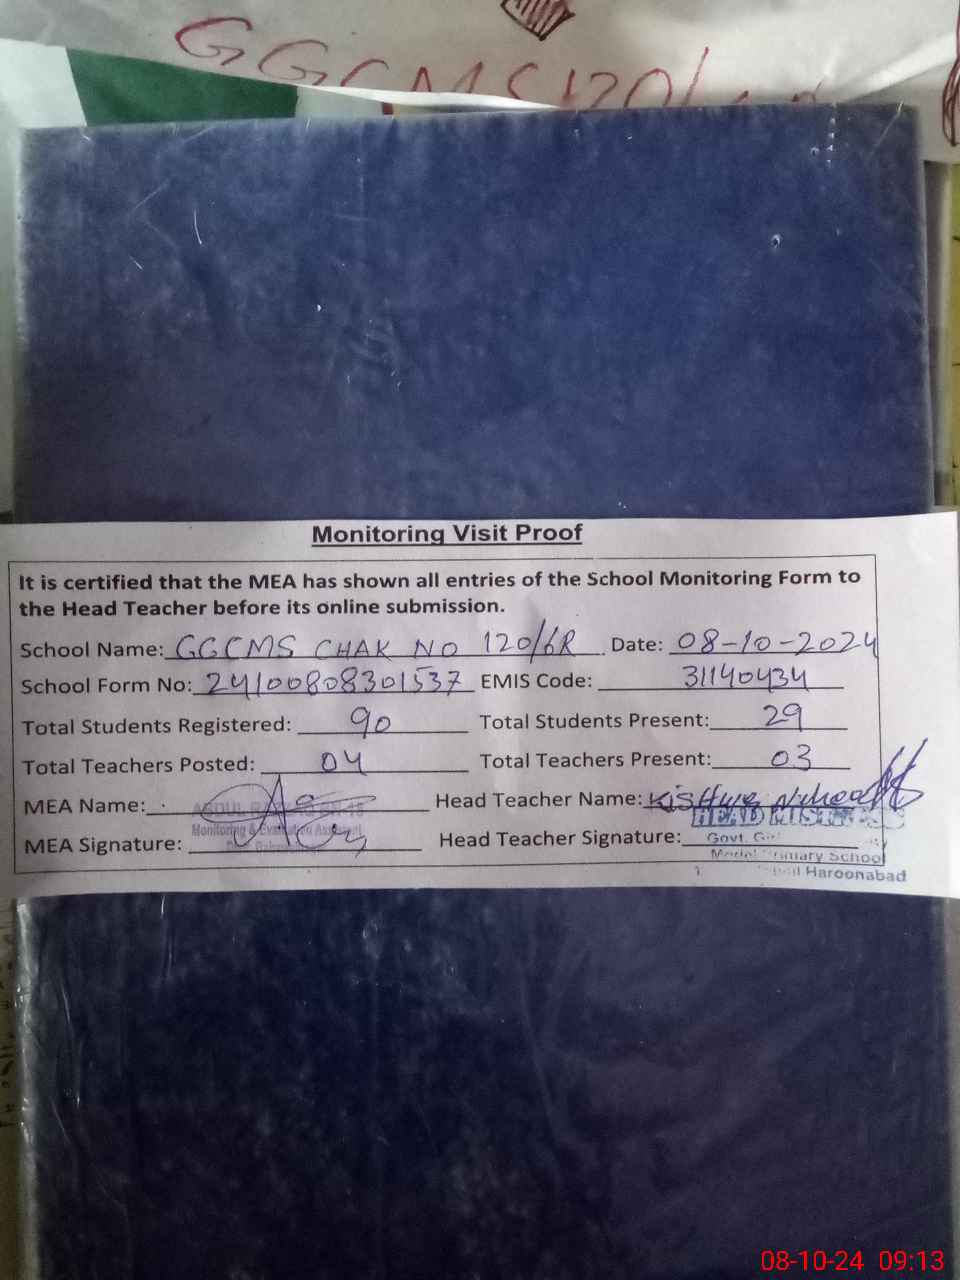 GGCMS 120/6R
Monitoring Visit Proof
It is certified that the MEA has shown all entries of the School Monitoring Form to
the Head Teacher before its online submission.
School Name: GGCMS CHAK NO 120/6R Date: 08-10-2024
School Form No: 24100808301537 EMIS Code: 31140434
Total Students Registered: 90 Total Students Present: 29
Total Teachers Posted: 04 Total Teachers Present: 03
MEA Name: Head Teacher Name:
Monitoring & Evaluation Assistant
HEAD MISTRESS
MEA Signature: Head Teacher Signature:
Govt.
Model Primary School
Haroonabad
08-10-24 09:13